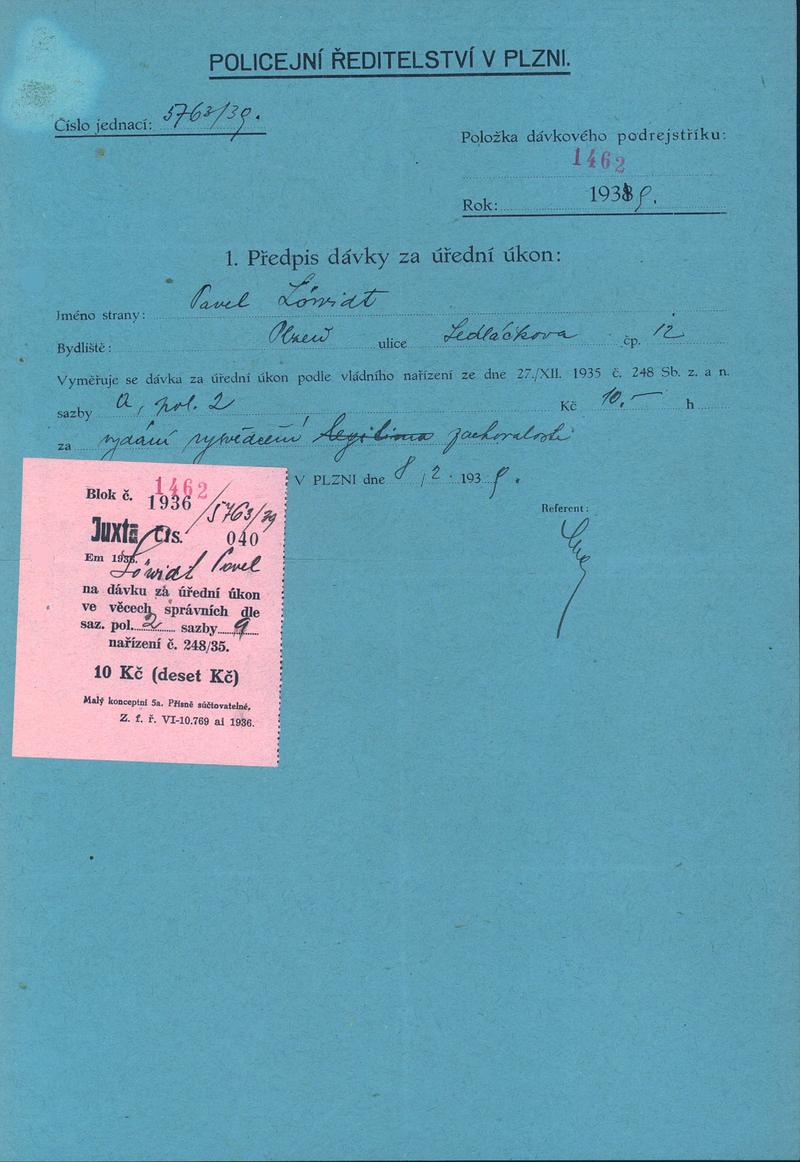 POLICEJNÍ ŘEDITELSTVÍ V PLZNI.
Číslo jednací: 5763/39.
Položka dávkového podrejstříku:
1462
Rok: 1939.
1. Předpis dávky za úřední úkon:
Jméno strany: Pavel Löwidt
Bydliště: Plzeň ulice Sedláčkova čp. 12
Vyměřuje se dávka za úřední úkon podle vládního nařízení ze dne 27./XII. 1935 č. 248 Sb. z. a n.
sazby a, pol. 2 Kč 10.— h
za vydání vysvědčení zachovalosti
V PLZNI dne 8/2. 1939.
Referent:
Blok č. 1462
1936 / 5763/39
Juxta čís. 040
Em 1936.
Löwidt Pavel
na dávku za úřední úkon
ve věcech správních dle
saz. pol. 2 sazby a
nařízení č. 248/35.
10 Kč (deset Kč)
Malý konceptní 5a. Přísně súčtovatelné,
Z. f. ř. VI-10.769 ai 1936.